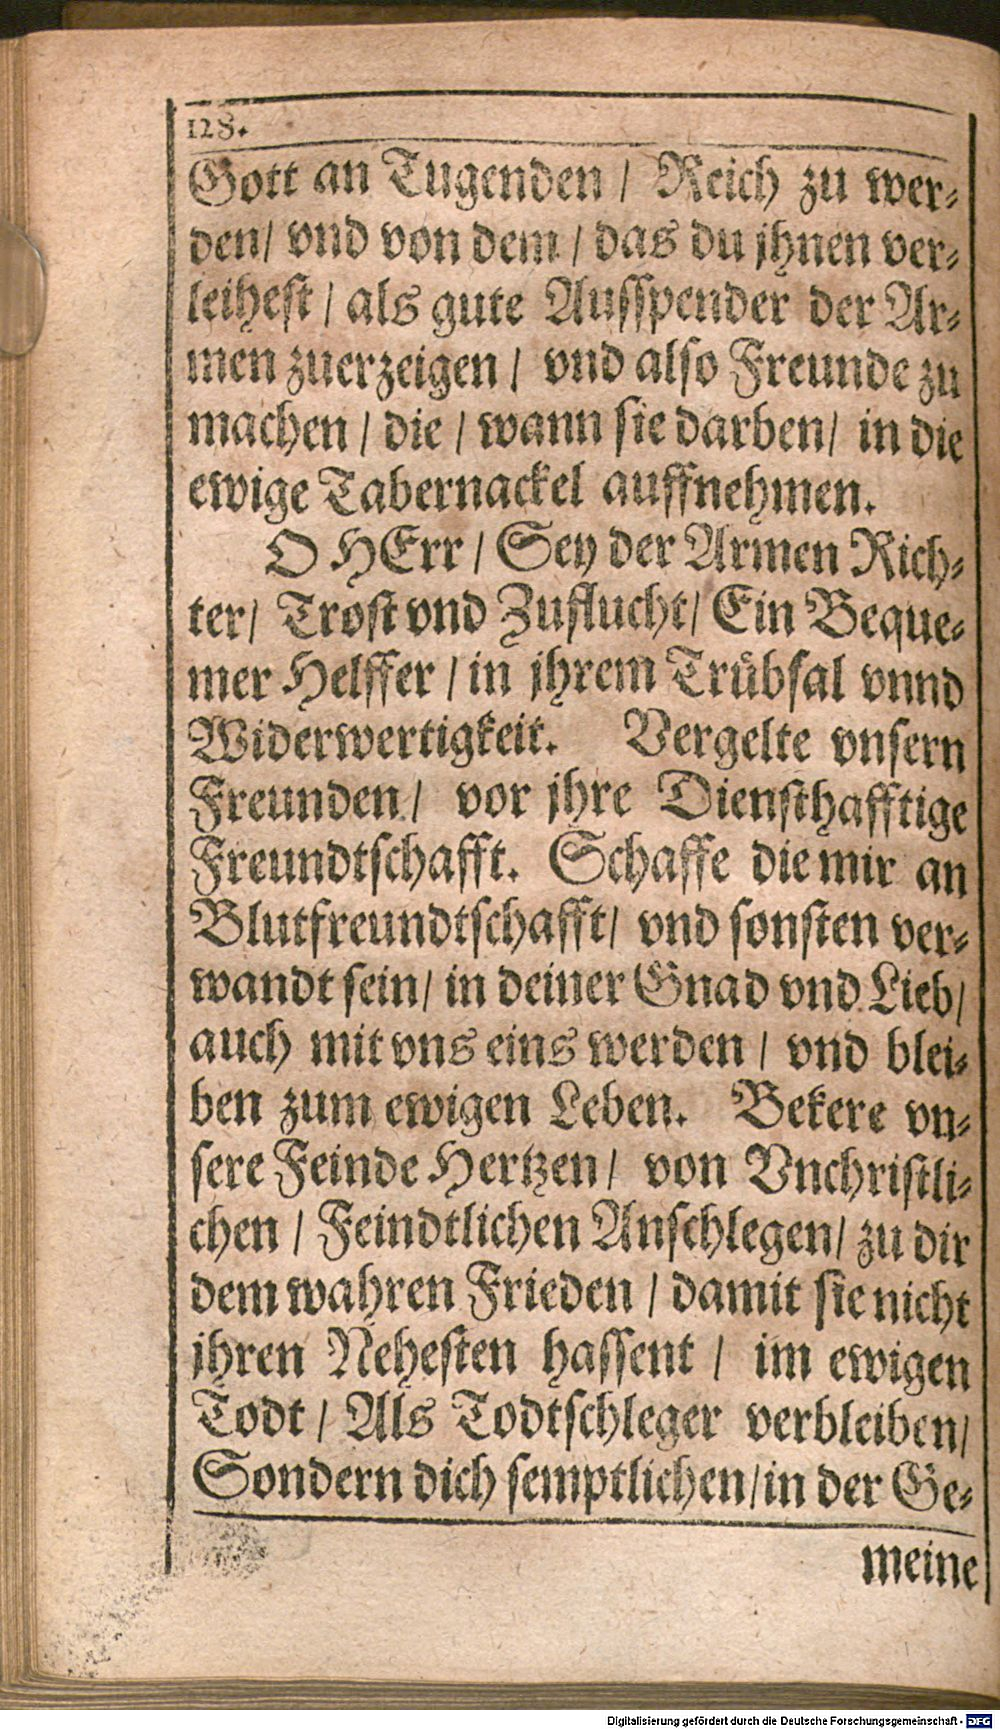 128.
Gott an Tugenden / Reich zu wer-
den/ vnd von dem / das du jhnen ver-
leihest / als gute Ausspender der Ar-
men zuerzeigen / vnd also Freunde zu
machen / die / wann sie darben/ in die
ewige Tabernackel auffnehmen.
O HErr / Sey der Armen Rich-
ter/ Trost vnd Zuflucht/ Ein Beque-
mer Helffer / in jhrem Trübsal vnnd
Widerwertigkeit. Vergelte vnsern
Freunden / vor jhre Diensthafftige
Freundtschafft. Schaffe die mir an
Blutfreundtschafft/ vnd sonsten ver-
wandt sein/ in deiner Gnad vnd Lieb/
auch mit vns eins werden / vnd blei-
ben zum ewigen Leben. Bekere vn-
sere Feinde Hertzen/ von Vnchristli-
chen / Feindtlichen Anschlegen/ zu dir
dem wahren Frieden / damit sie nicht
jhren Nehesten hassent / im ewigen
Todt / Als Todtschleger verbleiben/
Sondern dich semptlichen/in der Ge-
meine
Digitalisierung gefördert durch die Deutsche Forschungsgemeinschaft - DFG